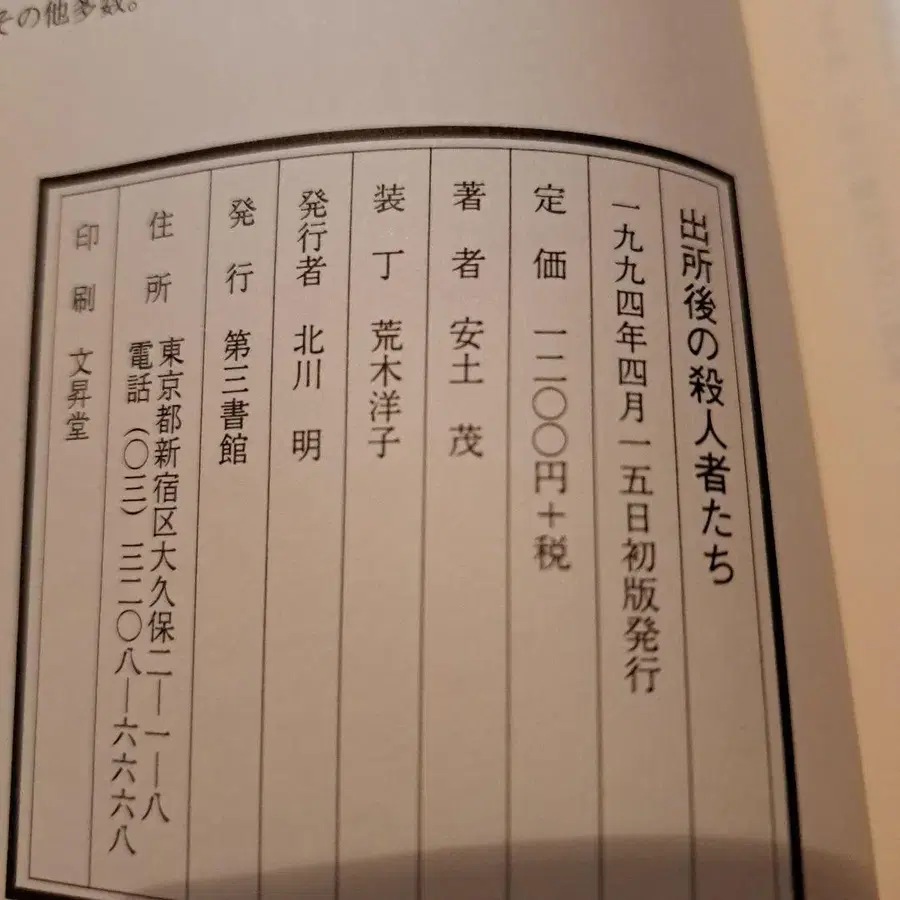 その他多数。
出所後の殺人者たち
一九九四年四月一五日初版発行
定価 一二〇〇円+税
著者 安土 茂
装丁 荒木洋子
発行者 北川 明
発行 第三書館
住所 東京都新宿区大久保二―一―八
電話(〇三)三二〇八―六六六八
印刷 文昇堂